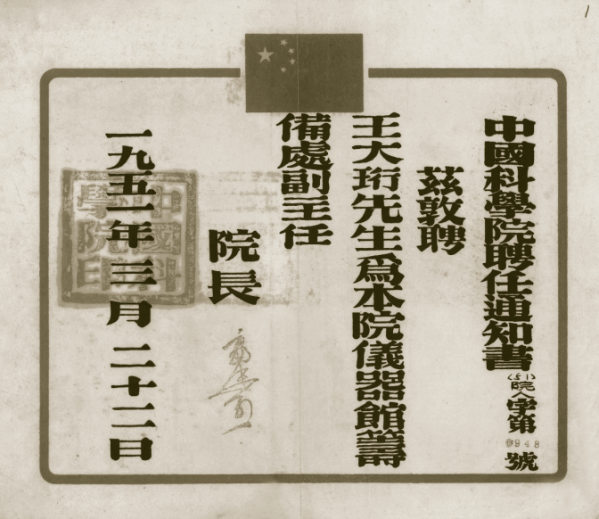 1
中國科學院聘任通知書(51)院人字第0948號
茲敦聘
王大珩先生爲本院儀器館籌
備處副主任
院長
一九五一年三月二十二日
中國科學院印